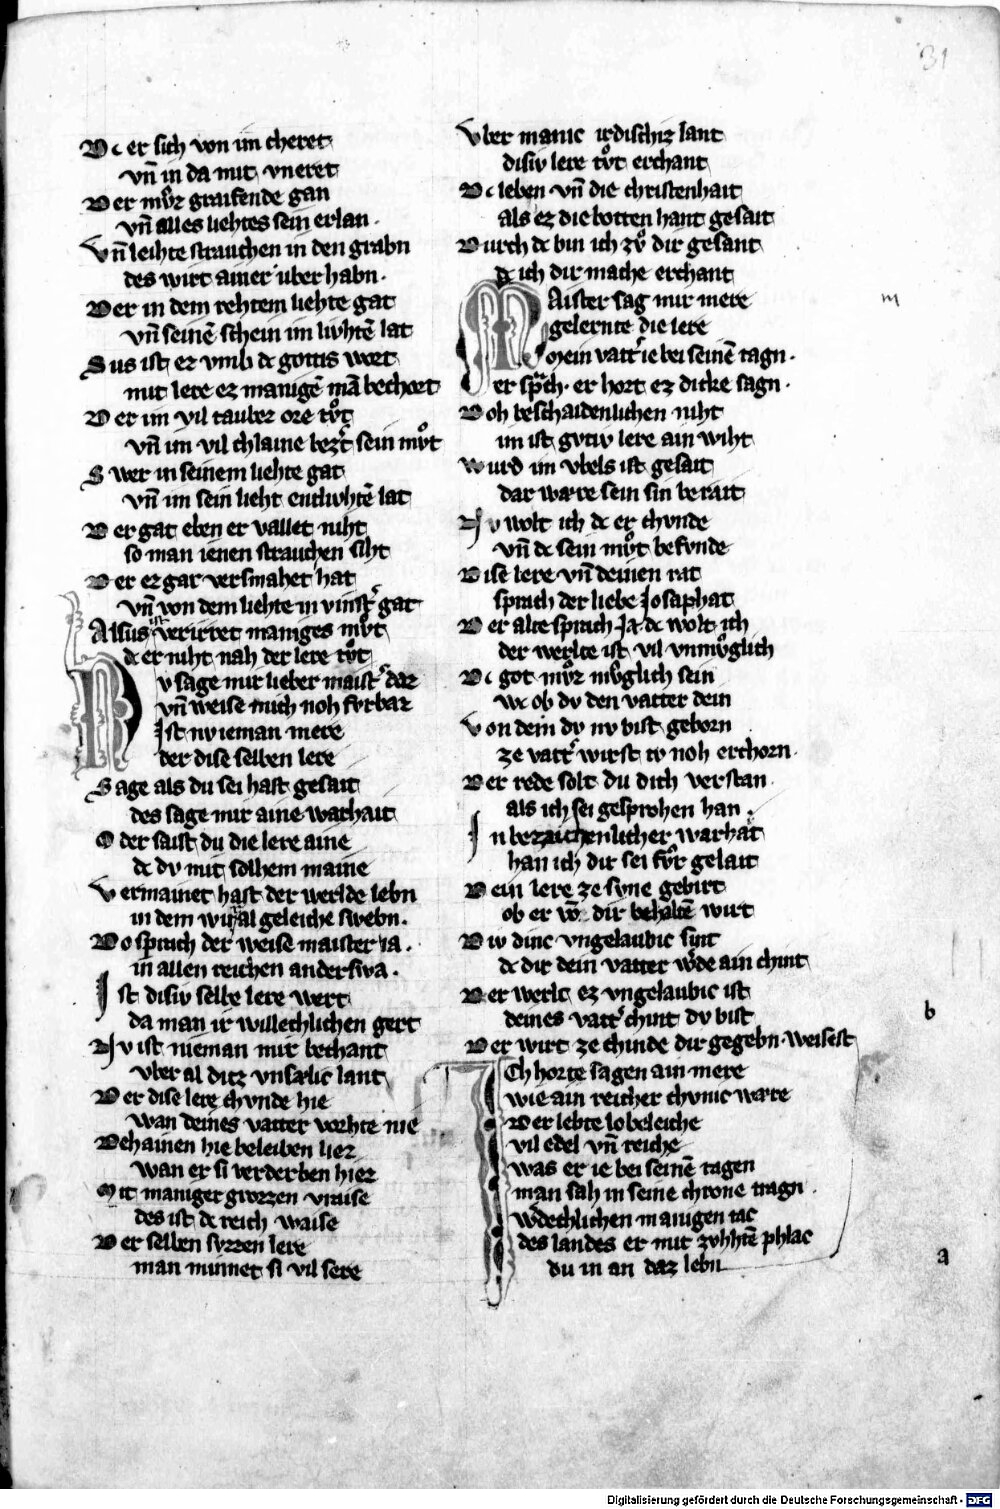 31
Dc er sich von im cheret
vn̄ in da mit vneret
Der mv̊z graifende gan
vn̄ alles liehtes sein erlan .
Vn̄ leihte strauchen in den grabn
des wirt ainer vber habn .
Der in dem rehtem liehte gat
vn̄ seinē schein im livhtē lat
Sus ist ez vmb dc gottis wort
mit lere ez manigē mā bechort
Der im vil tauber ore tv̊t
vn̄ im vil chlaine sein mv̊t
Swer in seinem liehte gat
vn̄ im sein lieht entlivhtē lat
Der gat eben er vallet niht
so man ienen strauchen siht
Der ez gar versmahet hat
vn̄ von dem liehte in vinst' gat
Alsus ist verirret maniges mv̊t
dc er niht nah der lere tv̊t
Nv sage mir lieber maist' dar
vn̄ weise mich noh fvrbaz
Ist nv ieman mere
der dise selben lere
Sage als du sei hast gesait
des sage mir aine warhait
Oder saist du die lere aine
dc dv mit solhem maine
Vermainet hast der werlde lebn
in dem geleiche swebn .
Do sprach der weise maister ia .
in allen reichen anderswa .
Ist disiv selbe lere wert
da man ir willechlichen gert
Nv ist nieman mir bechant
vber al ditz vnsælic lant
Der dise lere chvnde hie
wan deines vatter vorhte nie
Dehainen hie beleiben liez
wan er si verderben hiez
Mit maniger grozzen vraise
des ist dc reich waise
Der selben svzzen lere
man minnet si vil sere
Vber manic irdischiz lant
disiv lere tv̊t erchant
Dc leben vn̄ die christenhait
als ez die botten hant gesait
Durch dc bin ich zv̊ dir gesant
dc ich dir mache erchant
Maister sag mir mere
gelernte die lere
Mein vatt' ie bei seinē tagn .
er sprach . er hort ez dicke sagn .
Doh beschaidenlichen niht
im ist gvtiv lere ain wiht
Wurd im vbels ist gesait
dar wære sein sin berait
Nv wolt ich dc er chvnde
vn̄ dc sein mv̊t befvnde
Dise lere vn̄ deinen rat
sprach der liebe Josaphat
Der alte sprach Ja dc wolt ich
der werlte ist vil vnmv̊glich
Dc got mv̊z mv̊glich sein
wc ob dv den vatter dein
Von dem dv nv bist geborn
ze vatt' wirst tv noh erchorn .
Der rede solt du dich verstan .
als ich sei gesprohen han .
In bezaichenlicher warhat
han ich dir sei fv̊r gelait
Dein lere ze svne gebirt
ob er vō dir behaltē wirt
Div dinc vngelaubic sint
dc dir dein vatter w'de ain chint
Der werlt ez vngelaubic ist
deines vatt' chint dv bist
Der wirt ze chinde dir gegebn . weisest
Ich horte sagen ain mere
wie ain reicher chvnic wære
Der lebte lobeleiche
vil edel vn̄ reiche
was er ie bei seinē tagen
man sah in seine chrone tragn .
w'dechlichen manigen tac
des landes er mit zvhhtē phlac
du in an daz lebn
m
b
a
Digitalisierung gefördert durch die Deutsche Forschungsgemeinschaft - DFG